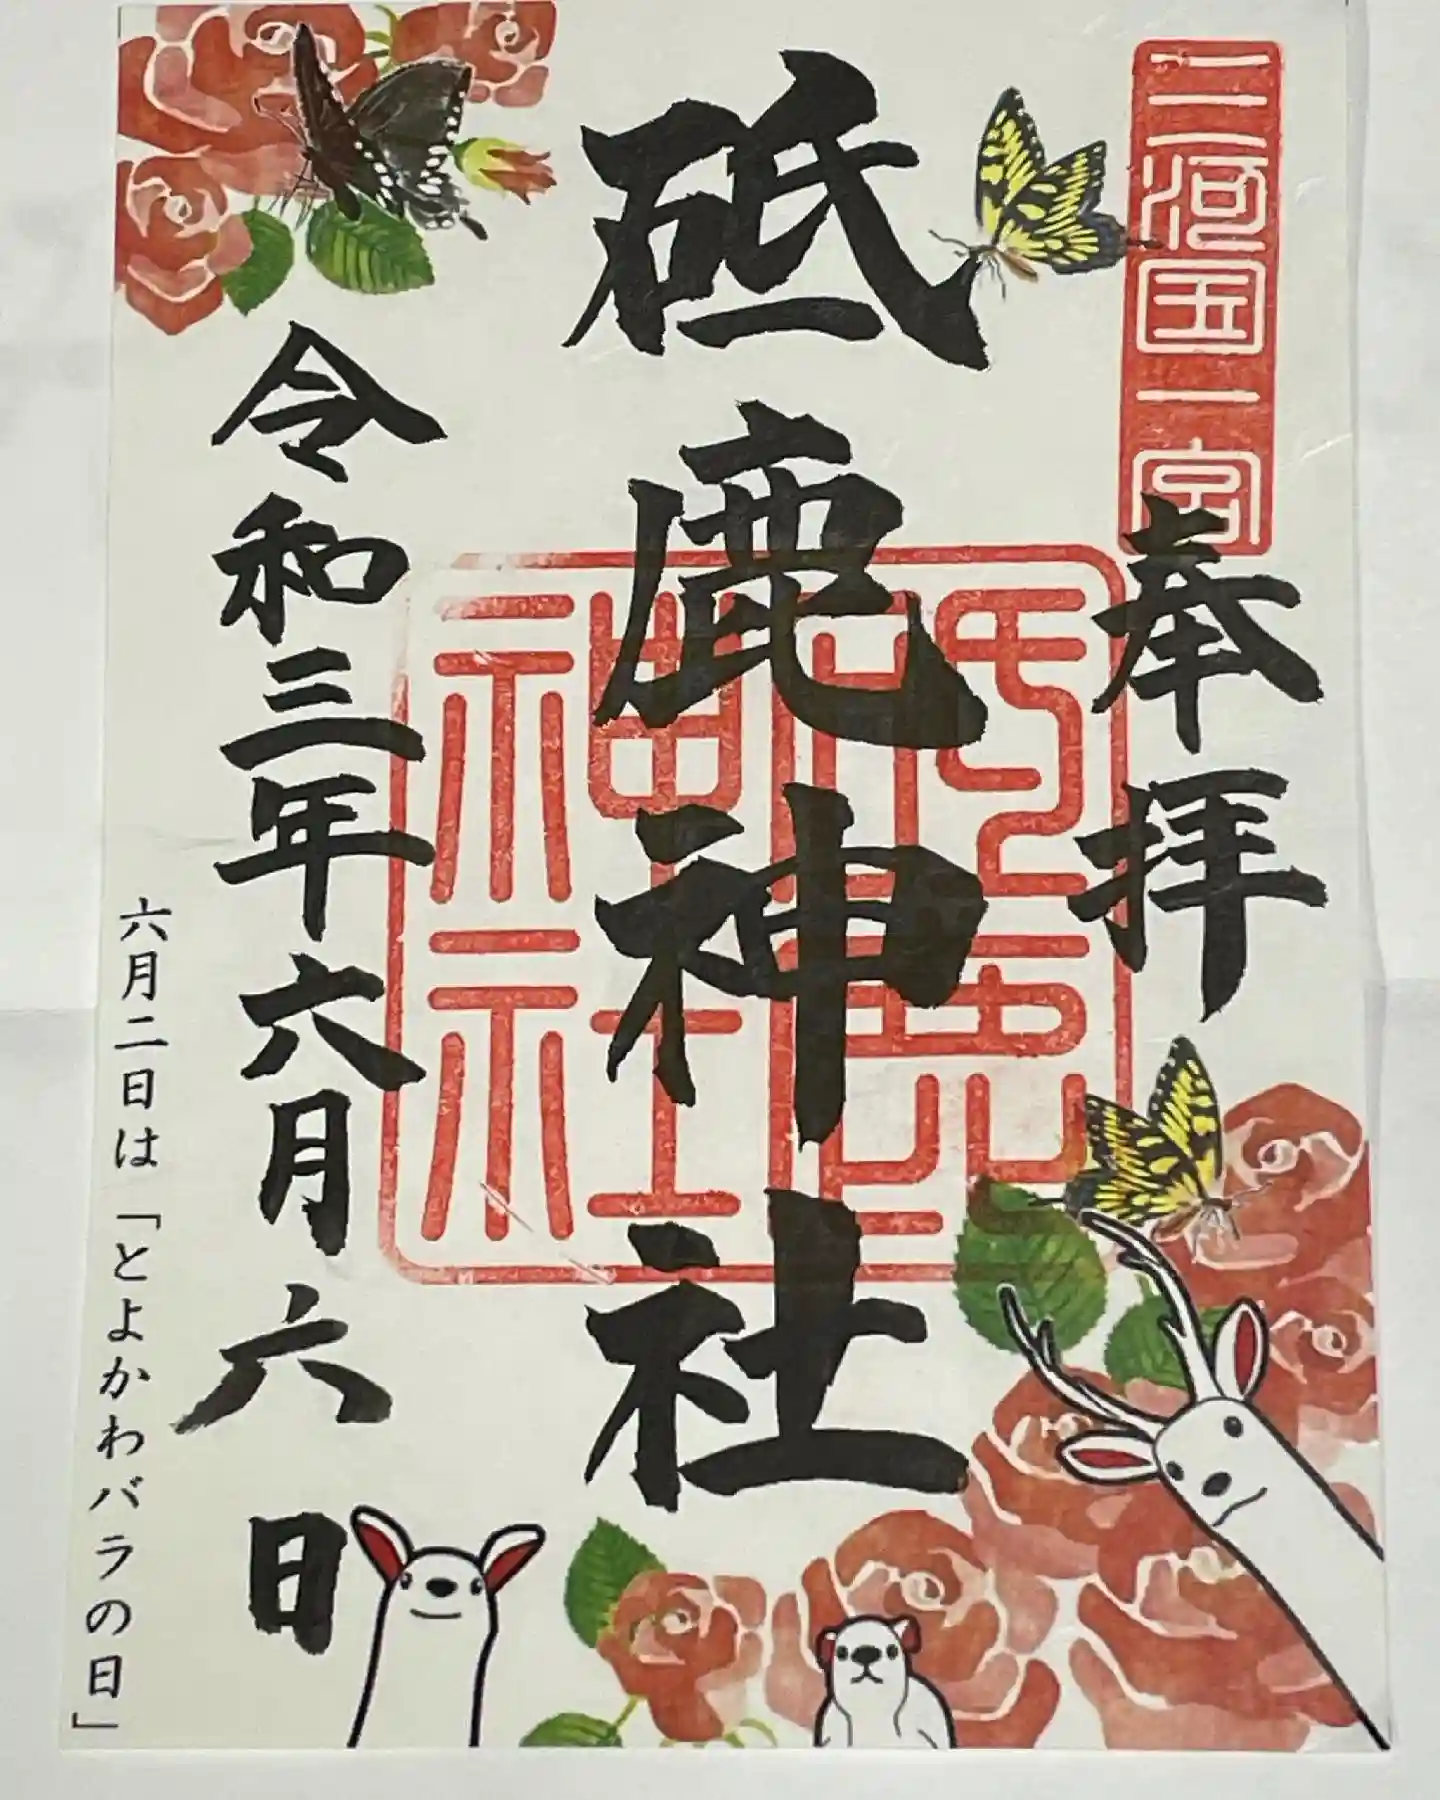 三河国一宮
奉拝
砥鹿神社
砥鹿
神社
令和三年六月六日
六月二日は「とよかわバラの日」